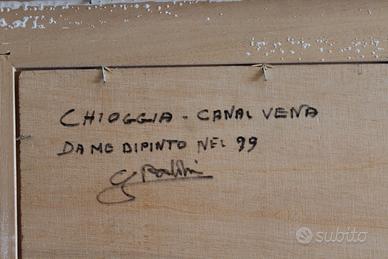 CHIOGGIA - CANAL VENA
DA ME DIPINTO NEL 99
subito